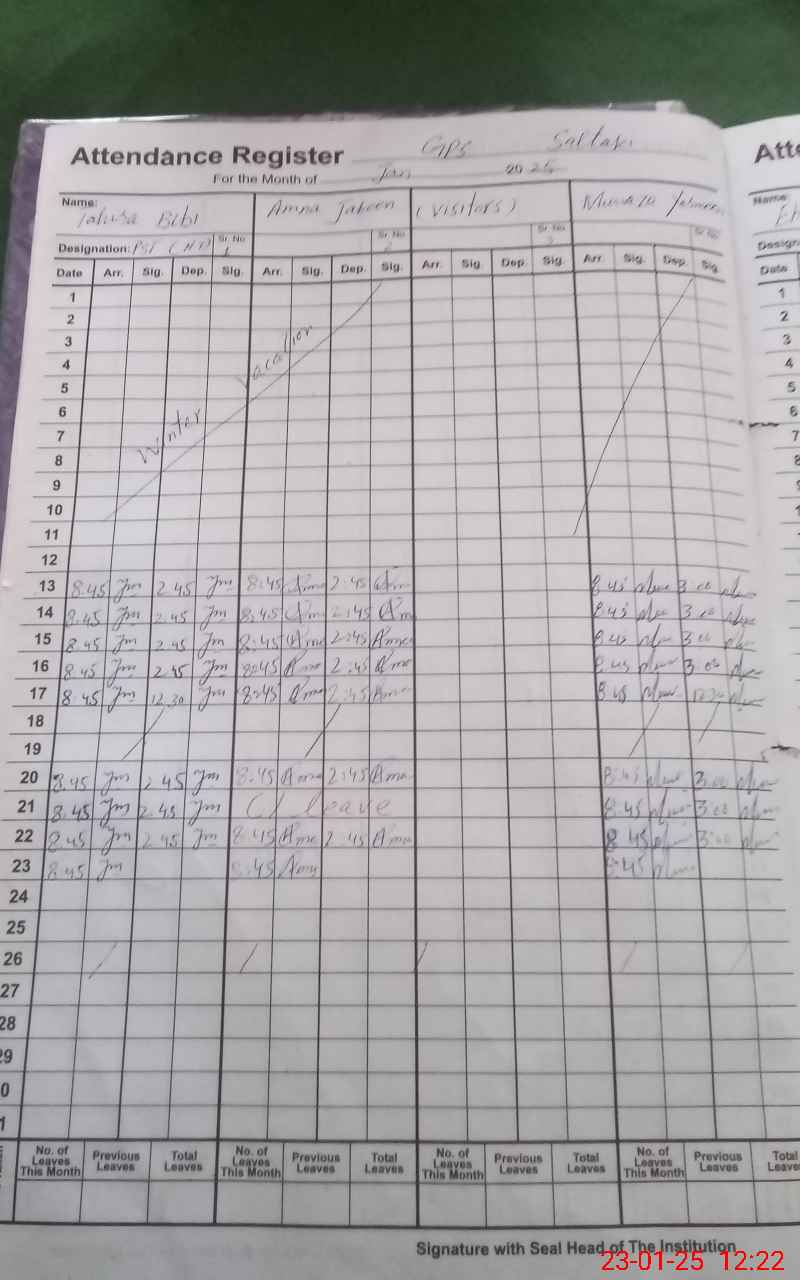 Attendance Register GPS
Atte
For the Month of Jan 2025
Name: Bibi Amna Jabeen (Visitors)
Name
Designation: PST Sr. No 1 Sr. No 2 Sr. No 3 Sr. No
Date Arr. Sig. Dep. Sig. Arr. Sig. Dep. Sig. Arr. Sig. Dep. Sig. Arr. Sig. Dep. Sig. Date
1 1
2 2
3 3
4 4
5 5
6 6
7 7
8 8
9 9
10
11
12
Winter Vacation
13 8.45 2.45 8:45 2:45 8 45 3 00
14 8.45 2.45 8:45 2:45 8 45 3 00
15 8.45 2.45 8:45 2:45 Ama 8 45 3 00
16 8.45 2.45 8:45 Ama 2:45 Ama 8 45 3 00
17 8.45 12.30 8:45 Ama 2:45 Ama 8 45 12 30
18
19
20 8.45 2 45 8:45 Ama 2:45 Ama 8:45 3:00
21 8.45 2.45 Cl leave 8:45 3:00
22 8.45 2.45 8:45 Ama 2:45 Ama 8 45 3:00
23 8.45 8:45 Ama 8:45
24
25
26
27
28
29
0
1
No. of Leaves This Month Previous Leaves Total Leaves No. of Leaves This Month Previous Leaves Total Leaves No. of Leaves This Month Previous Leaves Total Leaves No. of Leaves This Month Previous Leaves Total Leaves
Signature with Seal Head of The Institution
23-01-25 12:22